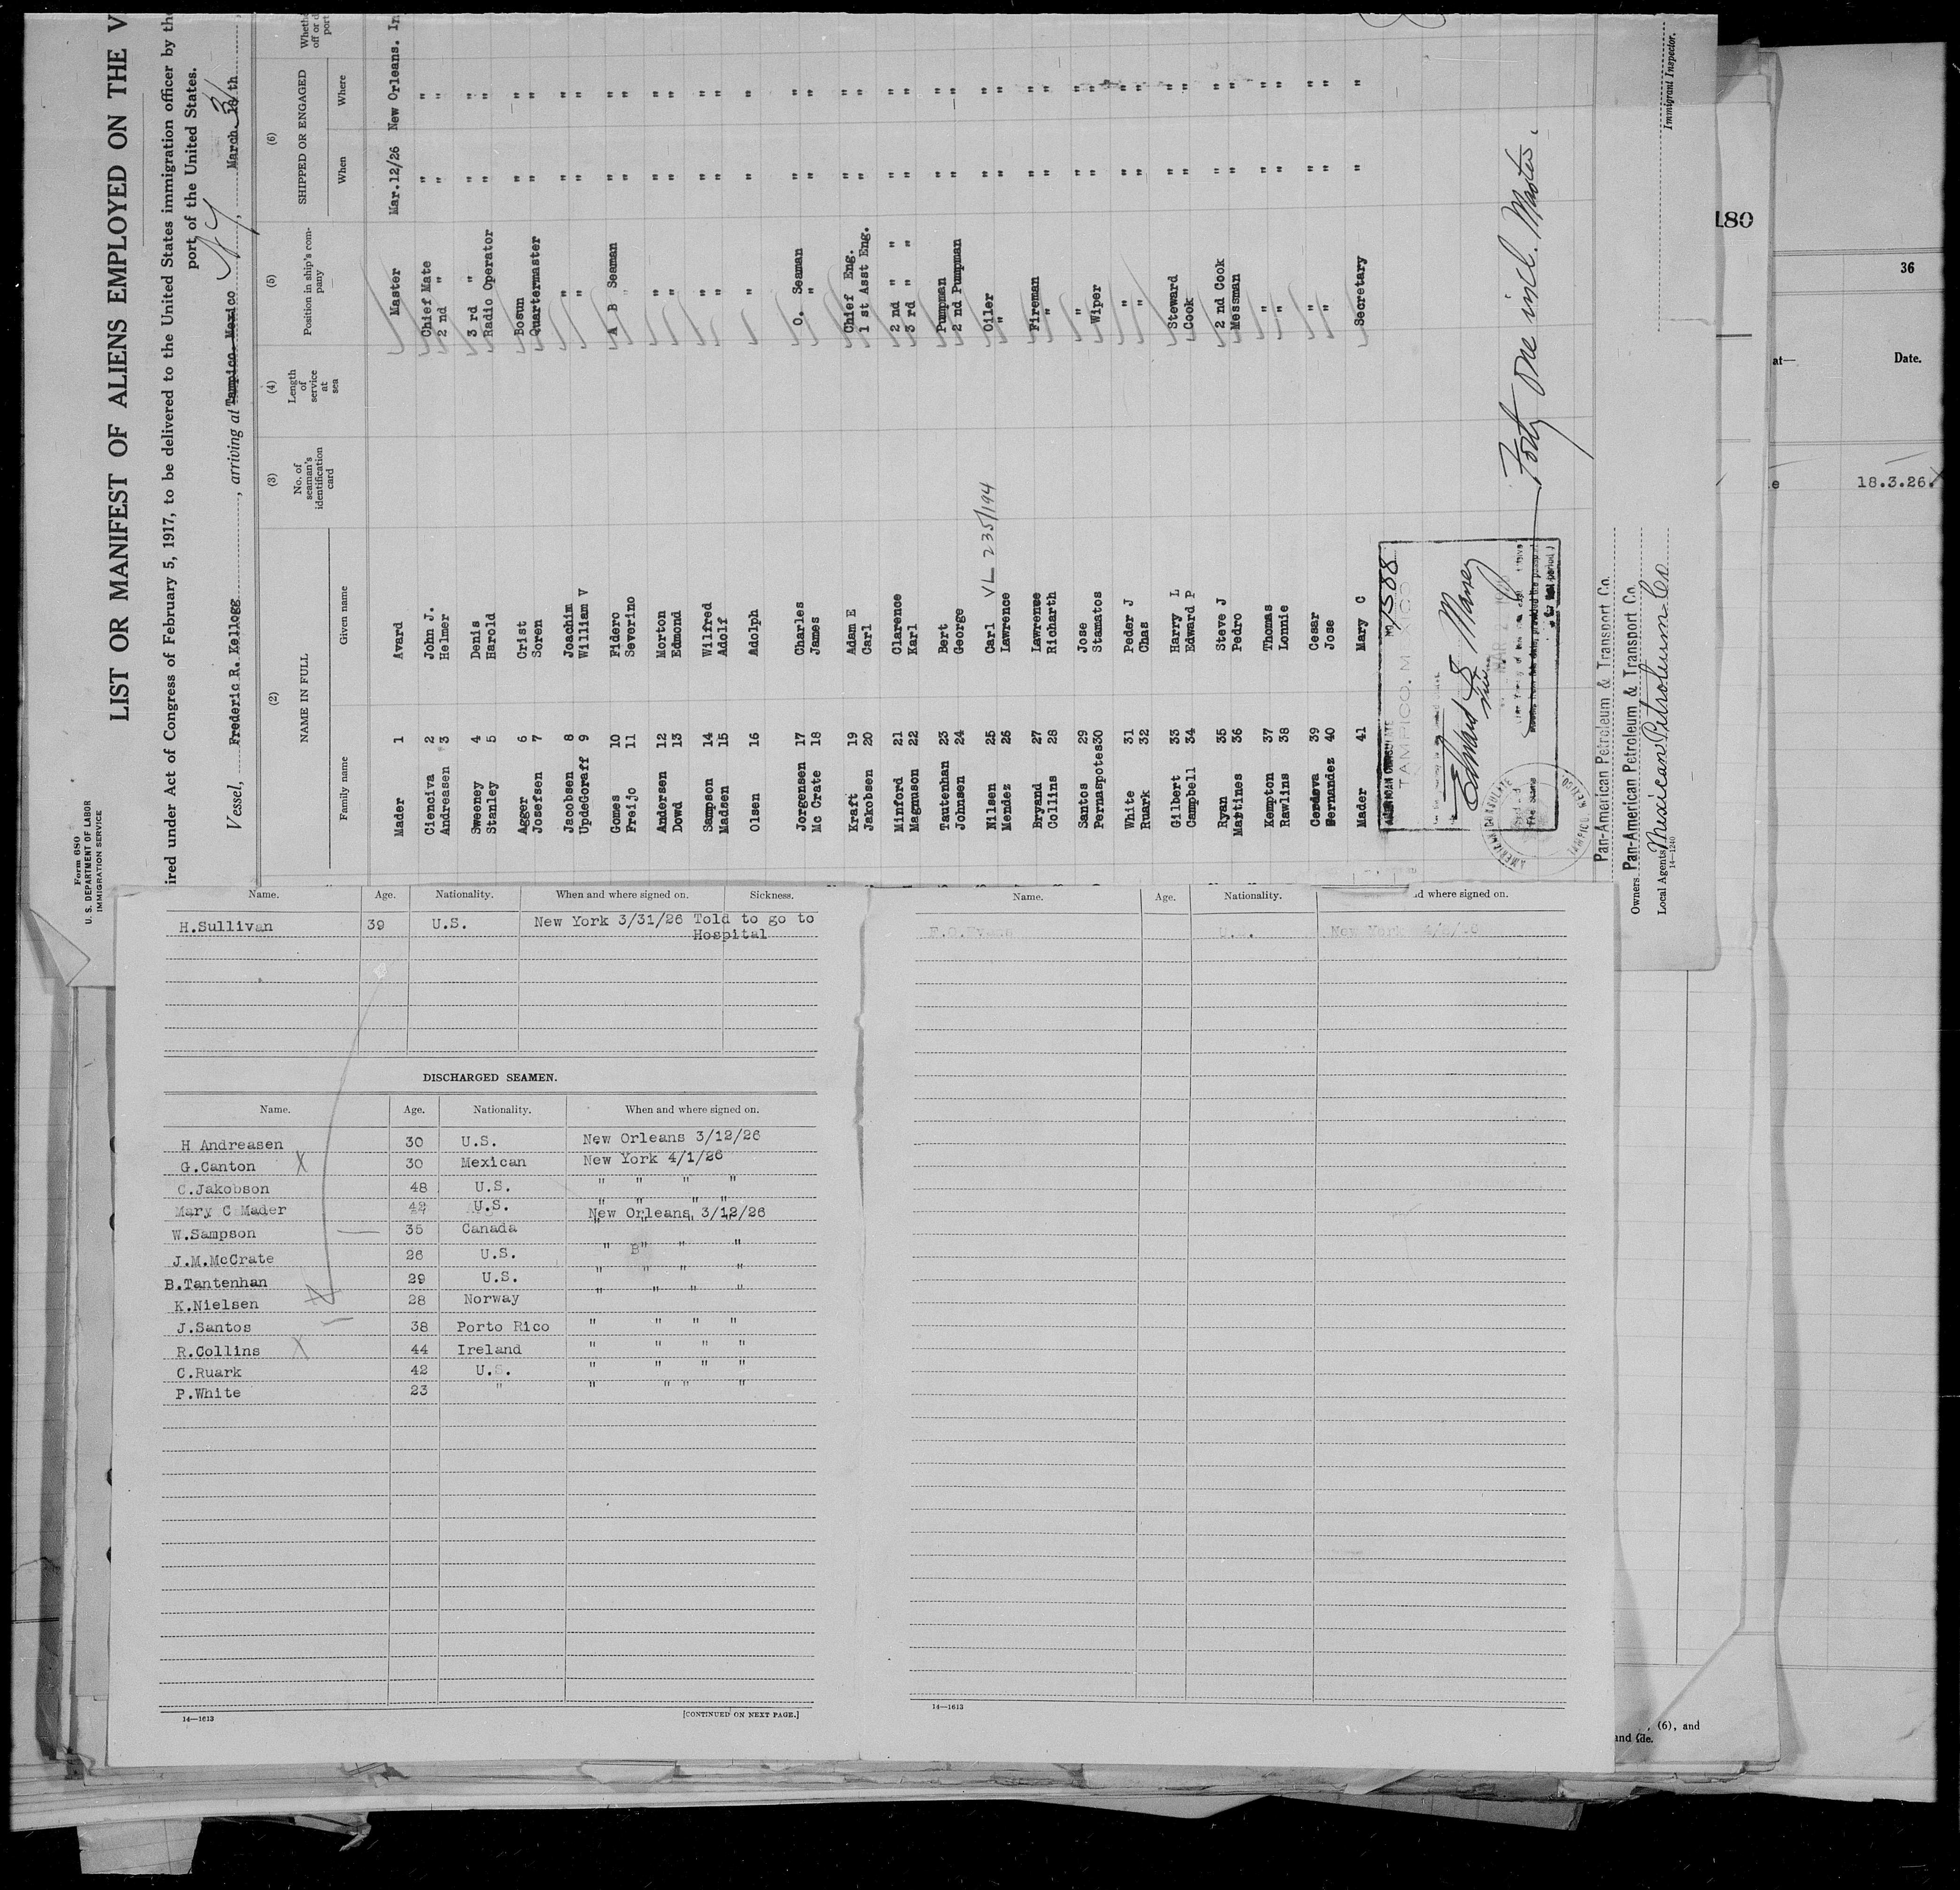 Form 680
U. S. DEPARTMENT OF LABOR
IMMIGRATION SERVICE
LIST OR MANIFEST OF ALIENS EMPLOYED ON THE V
ired under Act of Congress of February 5, 1917, to be delivered to the United States immigration officer by the
port of the United States.
Vessel, Frederic R. Kellogg, arriving at Tampico. Mexico N Y, March 31 th
(2) (3) (4) (5) (6)
NAME IN FULL No. of seaman's identification card Length of service at sea Position in ship's company SHIPPED OR ENGAGED
Family name Given name When Where
Mader 1 Avard Master Mar.12/26 New Orleans.
Cienciva 2 John J. Chief Mate " "
Andreasen 3 Helmer 2 nd " " "
Sweeney 4 Denis 3 rd " " "
Stanley 5 Harold Radio Operator " "
Agger 6 Crist Bosun " "
Josefsen 7 Soren Quartermaster " "
Jacobsen 8 Joachim " " "
UpdeGoraff 9 William V " " "
Gomes 10 Fidero A B Seaman " "
Freijo 11 Severino " " "
Andersen 12 Morton " " "
Dowd 13 Edmond " " "
Sampson 14 Wilfred " " "
Madsen 15 Adolf " " "
Olsen 16 Adolph " " "
Jorgensen 17 Charles O. Seaman " "
Mc Crate 18 James " " "
Kraft 19 Adam E Chief Eng. " "
Jakobsen 20 Carl 1 st Asst Eng. " "
Minford 21 Clarence 2 nd " " " "
Magnuson 22 Karl 3 rd " " " "
Tautenhan 23 Bert Pumpman " "
Johnsen 24 George 2 nd Pumpman " "
Nilsen 25 Carl VL 235/194 Oiler " "
Mendez 26 Lawrence " " "
Bryand 27 Lawrence Fireman " "
Collins 28 Richarth " " "
Santos 29 Jose " " "
Pernaspotes 30 Stamatos Wiper " "
White 31 Peder J " " "
Ruark 32 Chas " " "
Gilbert 33 Harry L Steward " "
Campbell 34 Edward P Cook " "
Ryan 35 Steve J 2 nd Cook " "
Martines 36 Pedro Messman " "
Kempton 37 Thomas " " "
Rawlins 38 Lonnie " " "
Cordova 39 Cesar " " "
Hernandez 40 Jose " " "
Mader 41 Mary C Secretary " "
AMERICAN CONSULATE No 1588
TAMPICO. MEXICO
Forty one incl. Master.
Pan-American Petroleum & Transport Co.
Owners Pan-American Petroleum & Transport Co.
Local Agents Mexican Petroleum Co
14—1240
Immigrant Inspector.
180
36
at—
Date.
e 18.3.26.
Name. Age. Nationality. When and where signed on. Sickness.
H.Sullivan 39 U.S. New York 3/31/26 Told to go to
Hospital
DISCHARGED SEAMEN.
Name. Age. Nationality. When and where signed on.
H Andreasen 30 U.S. New Orleans 3/12/26
G.Canton X 30 Mexican New York 4/1/26
C.Jakobson 48 U.S. " " " "
Mary C Mader 42 U.S. " " " "
W.Sampson 35 Canada New Orleans 3/12/26
J.M.McCrate 26 U.S. " " " "
B.Tantenhan 29 U.S. " " " "
K.Nielsen 28 Norway " " " "
J.Santos 38 Porto Rico " " " "
R.Collins X 44 Ireland " " " "
C.Ruark 42 U.S. " " " "
P.White 23 " " " " "
14—1613 [CONTINUED ON NEXT PAGE.]
Name. Age. Nationality. d where signed on.
New York
14—1613
, (6), and
and de.